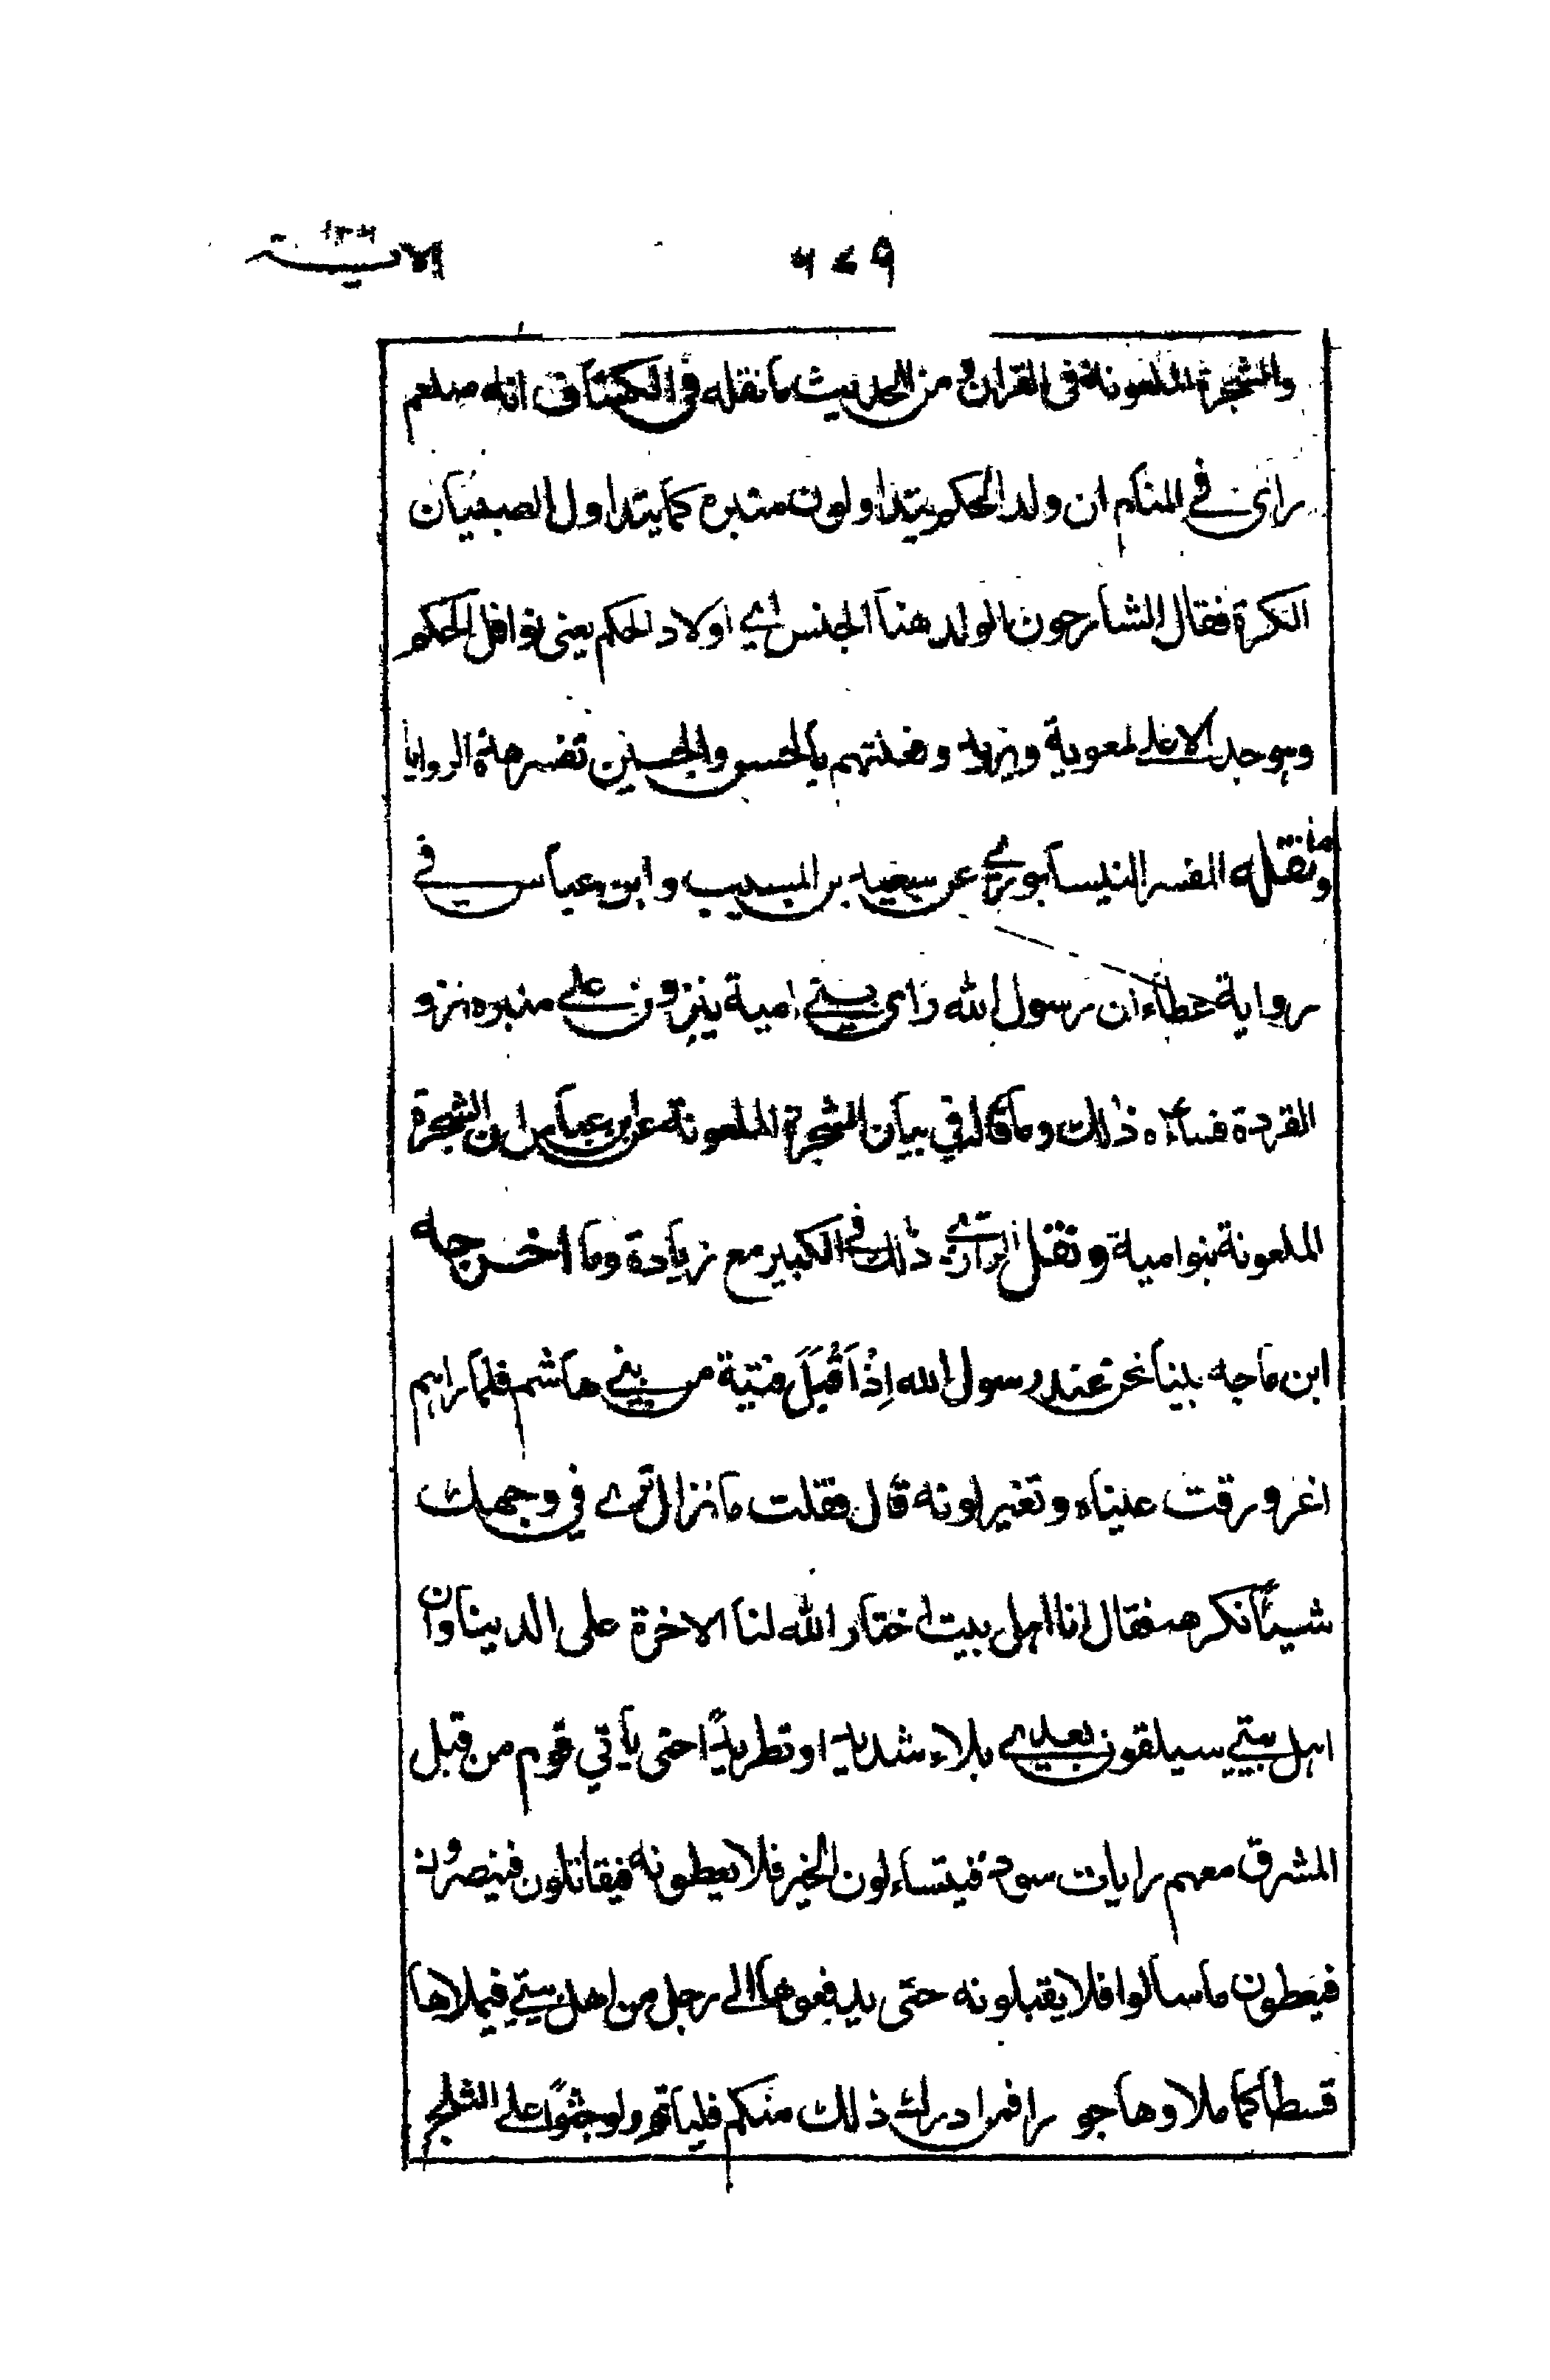 والشجرة الملعونة في القران و من الحديث ما نقله في الكشاف انه صلعم
رأى في المنام ان ولد الحكم يتداولون منبره كما يتداول الصبيان
الكرة فقال الشارحون الولد هنا الجنس اي اولاد الحكم يعني نوافل الحكم
وهو جد لمعوية ويزيد بالحسن والحسين هذه الروايا
وما نقله المفسر النيسابوري عن سعيد بن المسيب وابن عباس في
رواية عطاء ان رسول الله رأى بني امية ينزون على منبره نزو
القردة فساءه ذلك وما قاله في بيان الشجرة الملعونة عن ابن عباس ان الشجرة
الملعونة بنو امية ونقل الرازي ذلك في الكبير مع زيادة وما اخرجه
ابن ماجه بينا نحن عند رسول الله اِذْ اَقْبَلَ فتية من بني هاشم فلما راهم
اغرورقت عيناه وتغير لونه قال فقلت ما نزال نرى في وجهك
شيئًا نكرهه فقال انا اهل بيت اختار الله لنا الاخرة على الدينا وان
اهل بيتي سيلقون بعدي بلاء شديد او تطريدًا حتى يأتي قوم من قبل
المشرق معهم رايات سود فيتساءلون الخير فلا يعطونه فيقاتلون فينصرون
فيعطون ما سالوا فلا يقبلونه حتى يدفعوها الى رجل من اهل بيتي فيملاها
قسطا كما ملاوها جورا فمن ادرك ذلك منكم فلياتهم ولو حبْوًا على الثلج